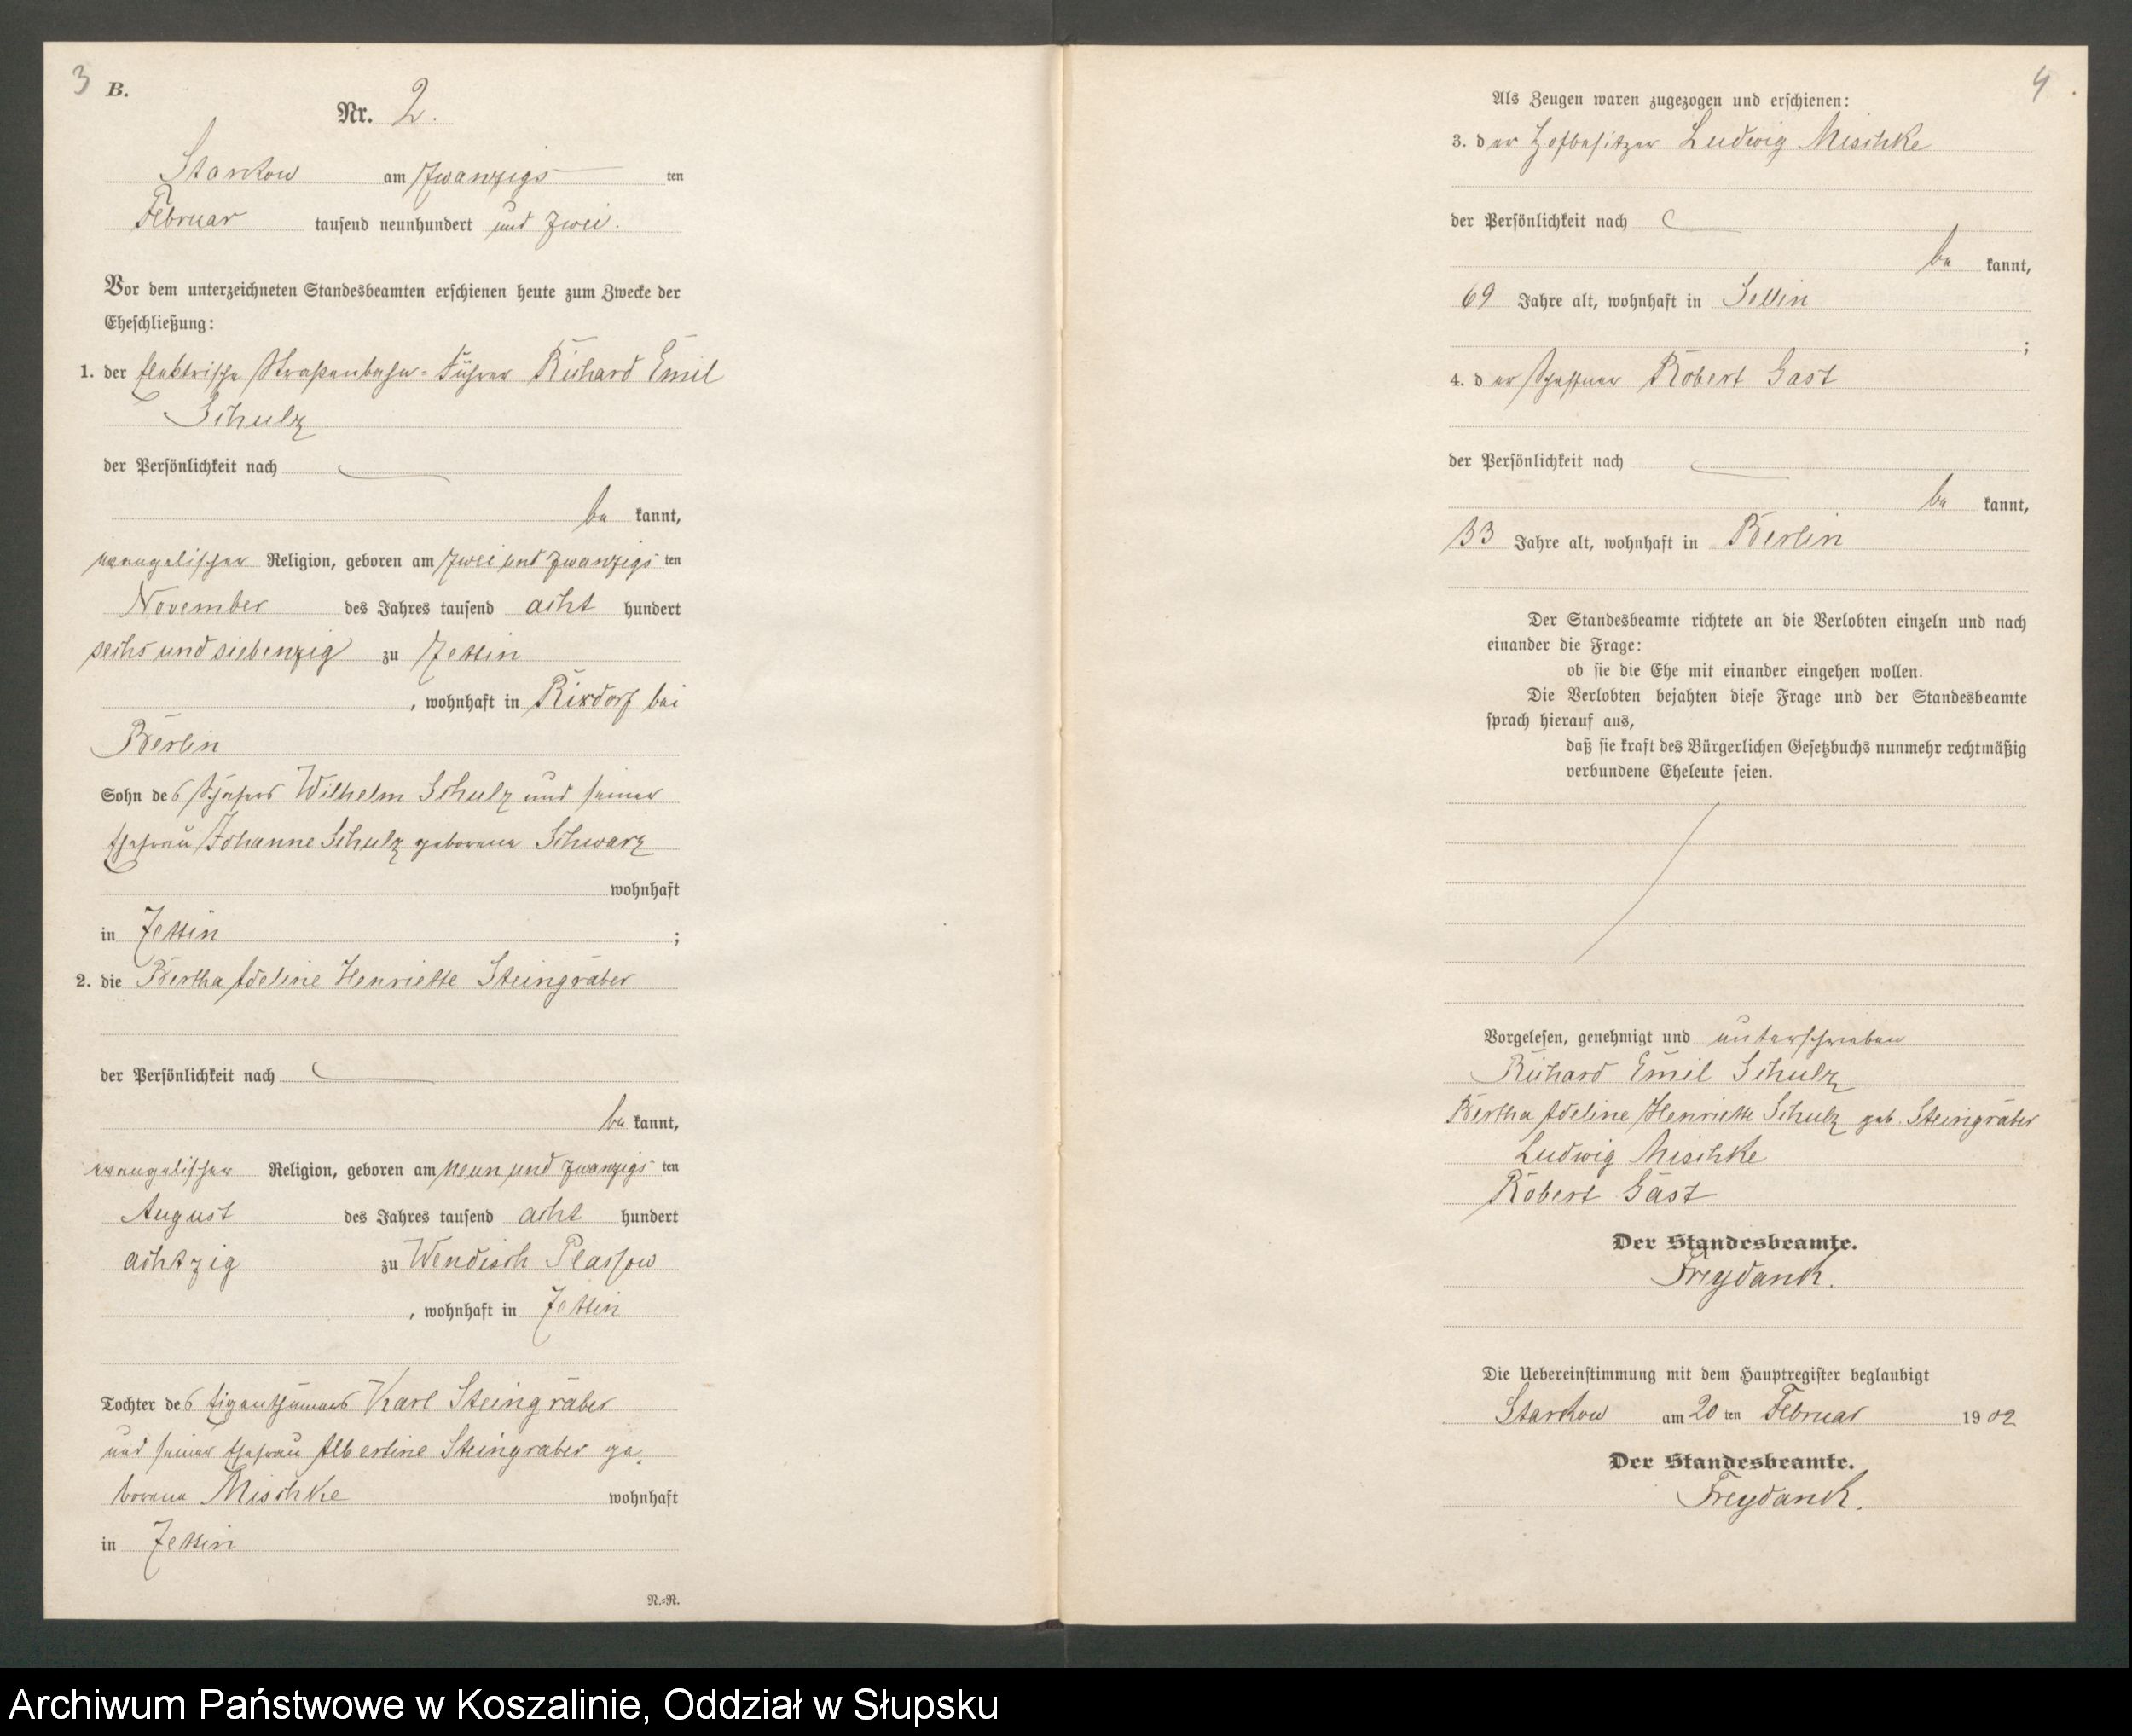 3 B.
Nr. 2.
Starkow am Zwanzigs ten
Februar tausend neunhundert und zwei.
Vor dem unterzeichneten Standesbeamten erschienen heute zum Zwecke der
Eheschließung:
1. der elektrische Straßenbahn-Führer Richard Emil
Schulz
der Persönlichkeit nach
be kannt,
evangelischer Religion, geboren am zwei und zwanzigs ten
November des Jahres tausend acht hundert
sechs und siebenzig zu Jettin
, wohnhaft in Rixdorf bei
Berlin
Sohn des Schäfers Wilhelm Schulz und seiner
Ehefrau Johanne Schulz geborene Schwarz
wohnhaft
in Zettin ;
2. die Bertha Adeline Henriette Steingräber
der Persönlichkeit nach
be kannt,
evangelischer Religion, geboren am neun und zwanzigs ten
August des Jahres tausend acht hundert
achtzig zu Wendisch Plassow
, wohnhaft in Zettin
Tochter des Eigenthümers Karl Steingräber
und seiner Ehefrau Albertine Steingräber ge,
borene Mischke wohnhaft
in Zettin
N.-R.
4
Als Zeugen waren zugezogen und erschienen:
3. der Hofbesitzer Ludwig Mischke
der Persönlichkeit nach
be kannt,
69 Jahre alt, wohnhaft in Sellin
;
4. der Schaffner Robert Gast
der Persönlichkeit nach
be kannt,
33 Jahre alt, wohnhaft in Berlin
Der Standesbeamte richtete an die Verlobten einzeln und nach
einander die Frage:
ob sie die Ehe mit einander eingehen wollen.
Die Verlobten bejahten diese Frage und der Standesbeamte
sprach hierauf aus,
daß sie kraft des Bürgerlichen Gesetzbuchs nunmehr rechtmäßig
verbundene Eheleute seien.
Vorgelesen, genehmigt und unterschrieben
Richard Emil Schulz
Bertha Adeline Henriette Schulz geb. Steingräber
Ludwig Mischke
Robert Gast
Der Standesbeamte.
Freydank.
Die Uebereinstimmung mit dem Hauptregister beglaubigt
Starkow am 20 ten Februar 1902
Der Standesbeamte.
Freydank.
Archiwum Państwowe w Koszalinie, Oddział w Słupsku